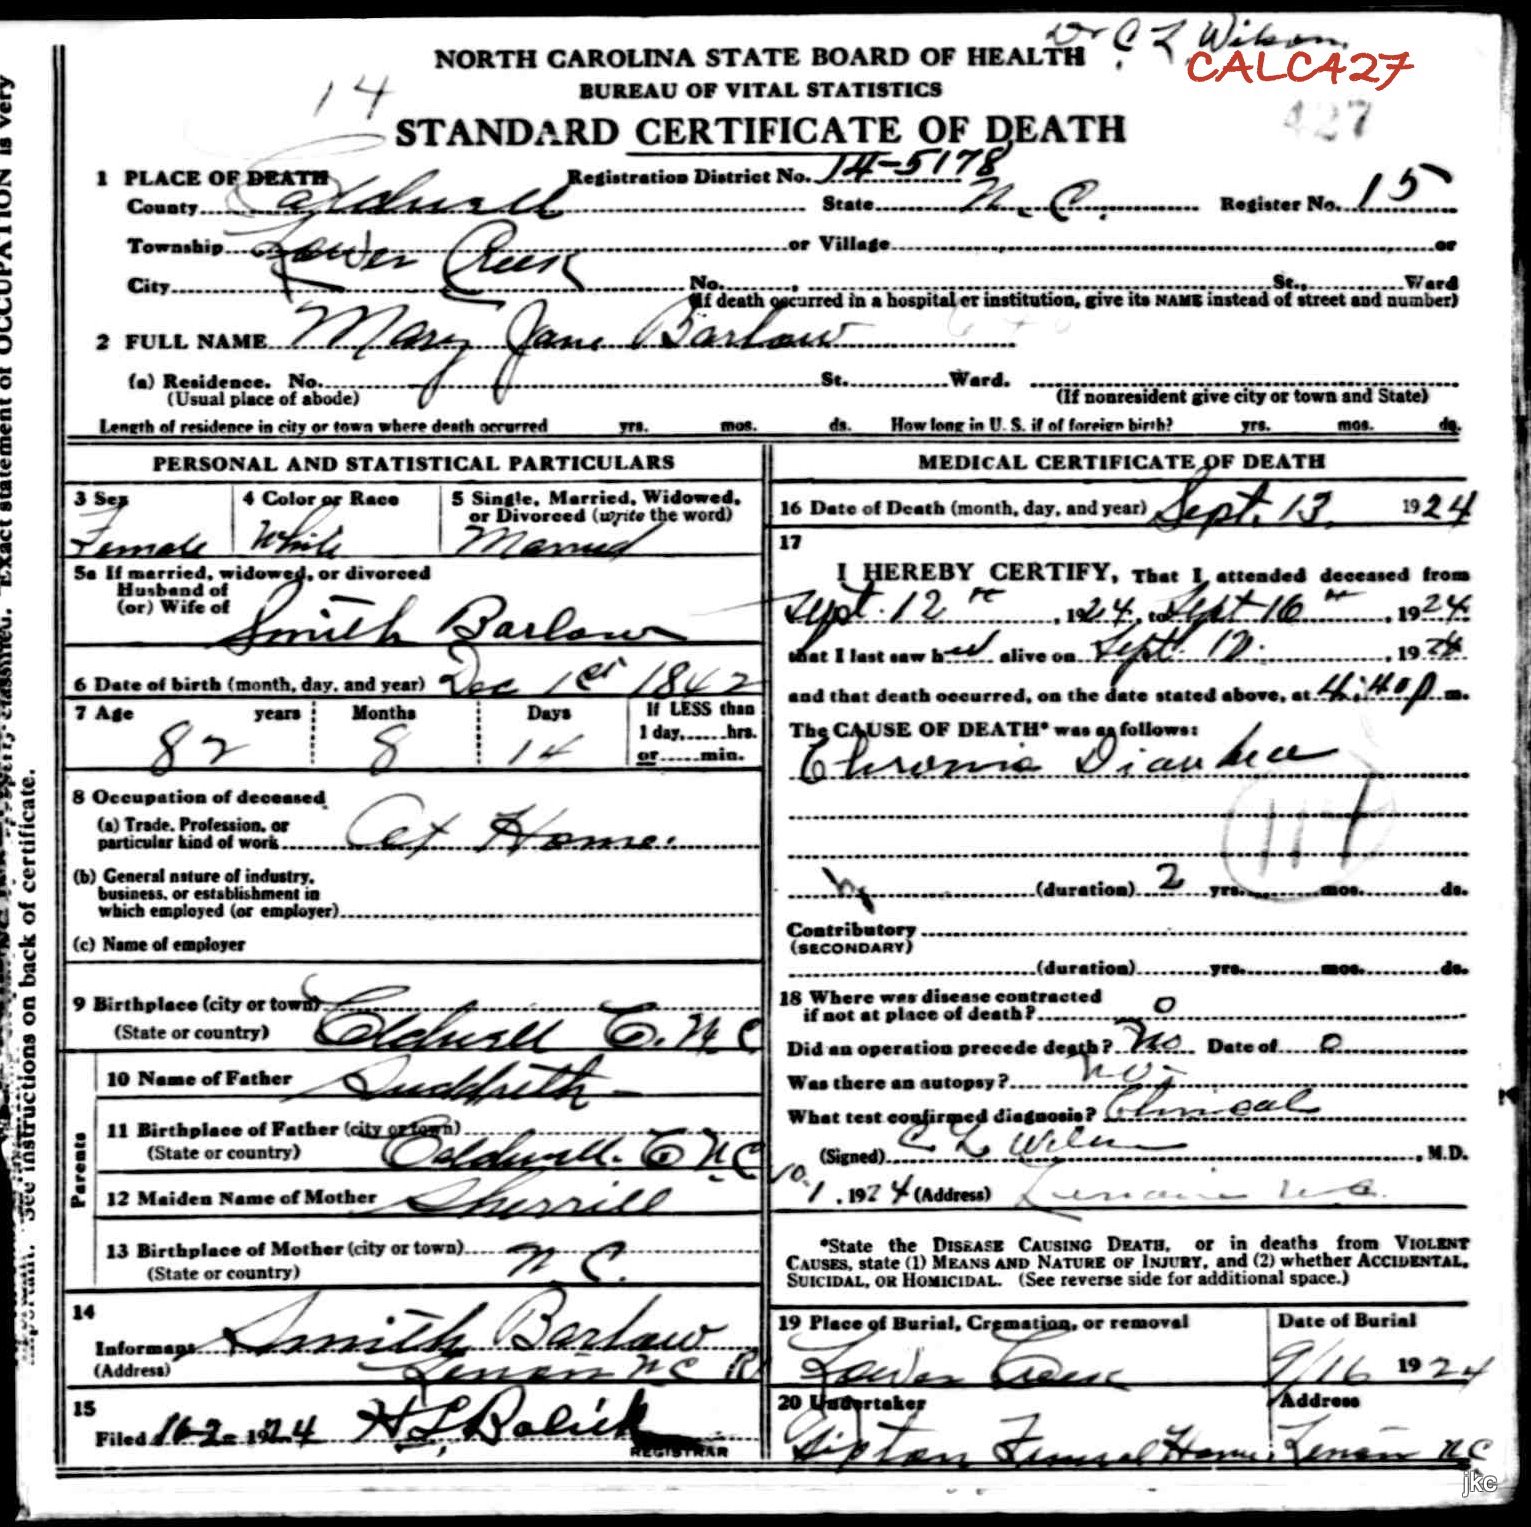 Dr C L Wilson.
CALC427
427
14
NORTH CAROLINA STATE BOARD OF HEALTH
BUREAU OF VITAL STATISTICS
STANDARD CERTIFICATE OF DEATH
1 PLACE OF DEATH Registration District No. 14-5178
County Caldwell State N. C. Register No. 15
Township Lower Creek or Village or
City No. , St., Ward
(If death occurred in a hospital or institution, give its NAME instead of street and number)
2 FULL NAME Mary Jane Barlow
(a) Residence. No. St. Ward.
(Usual place of abode) (If nonresident give city or town and State)
Length of residence in city or town where death occurred yrs. mos. ds. How long in U. S. if of foreign birth? yrs. mos. ds.
PERSONAL AND STATISTICAL PARTICULARS
3 Sex 4 Color or Race 5 Single, Married, Widowed,
or Divorced (write the word)
Female White Married
5a If married, widowed, or divorced
Husband of
(or) Wife of
Smith Barlow
6 Date of birth (month, day, and year) Dec 1st 1842
7 Age years Months Days If LESS than
1 day, hrs.
or min.
82 8 14
8 Occupation of deceased
(a) Trade, Profession, or
particular kind of work At Home.
(b) General nature of industry,
business, or establishment in
which employed (or employer)
(c) Name of employer
9 Birthplace (city or town)
(State or country) Caldwell C. N C
Parents
10 Name of Father Suddreth
11 Birthplace of Father (city or town)
(State or country) Caldwell. C N.C
12 Maiden Name of Mother Sherrill
13 Birthplace of Mother (city or town) N C.
(State or country)
14
Informant Smith Barlow
(Address) Lenoir N C R
15
Filed 1924 H L Bolick
REGISTRAR
MEDICAL CERTIFICATE OF DEATH
16 Date of Death (month, day, and year) Sept. 13. 1924
17
I HEREBY CERTIFY, That I attended deceased from
Sept. 12 , 1924, to Sept 16 , 1924
that I last saw her alive on Sept. 12. , 1924
and that death occurred, on the date stated above, at 4:40 p m.
The CAUSE OF DEATH* was as follows:
Chronic Diarrhea
(duration) 2 yrs. mos. ds.
Contributory
(SECONDARY)
(duration) yrs. mos. ds.
18 Where was disease contracted
if not at place of death? 0
Did an operation precede death? No Date of 0
Was there an autopsy? No
What test confirmed diagnosis? Clinical
(Signed) C L Wilson , M.D.
10-1, 1924 (Address) Lenoir N.C.
*State the DISEASE CAUSING DEATH, or in deaths from VIOLENT
CAUSES, state (1) MEANS AND NATURE OF INJURY, and (2) whether ACCIDENTAL,
SUICIDAL, OR HOMICIDAL. (See reverse side for additional space.)
19 Place of Burial, Cremation, or removal Date of Burial
Lower Creek 9/16 1924
20 Undertaker Address
Gipton Funeral Home Lenoir N.C
jkc
See instructions on back of certificate.
Exact statement of OCCUPATION is very